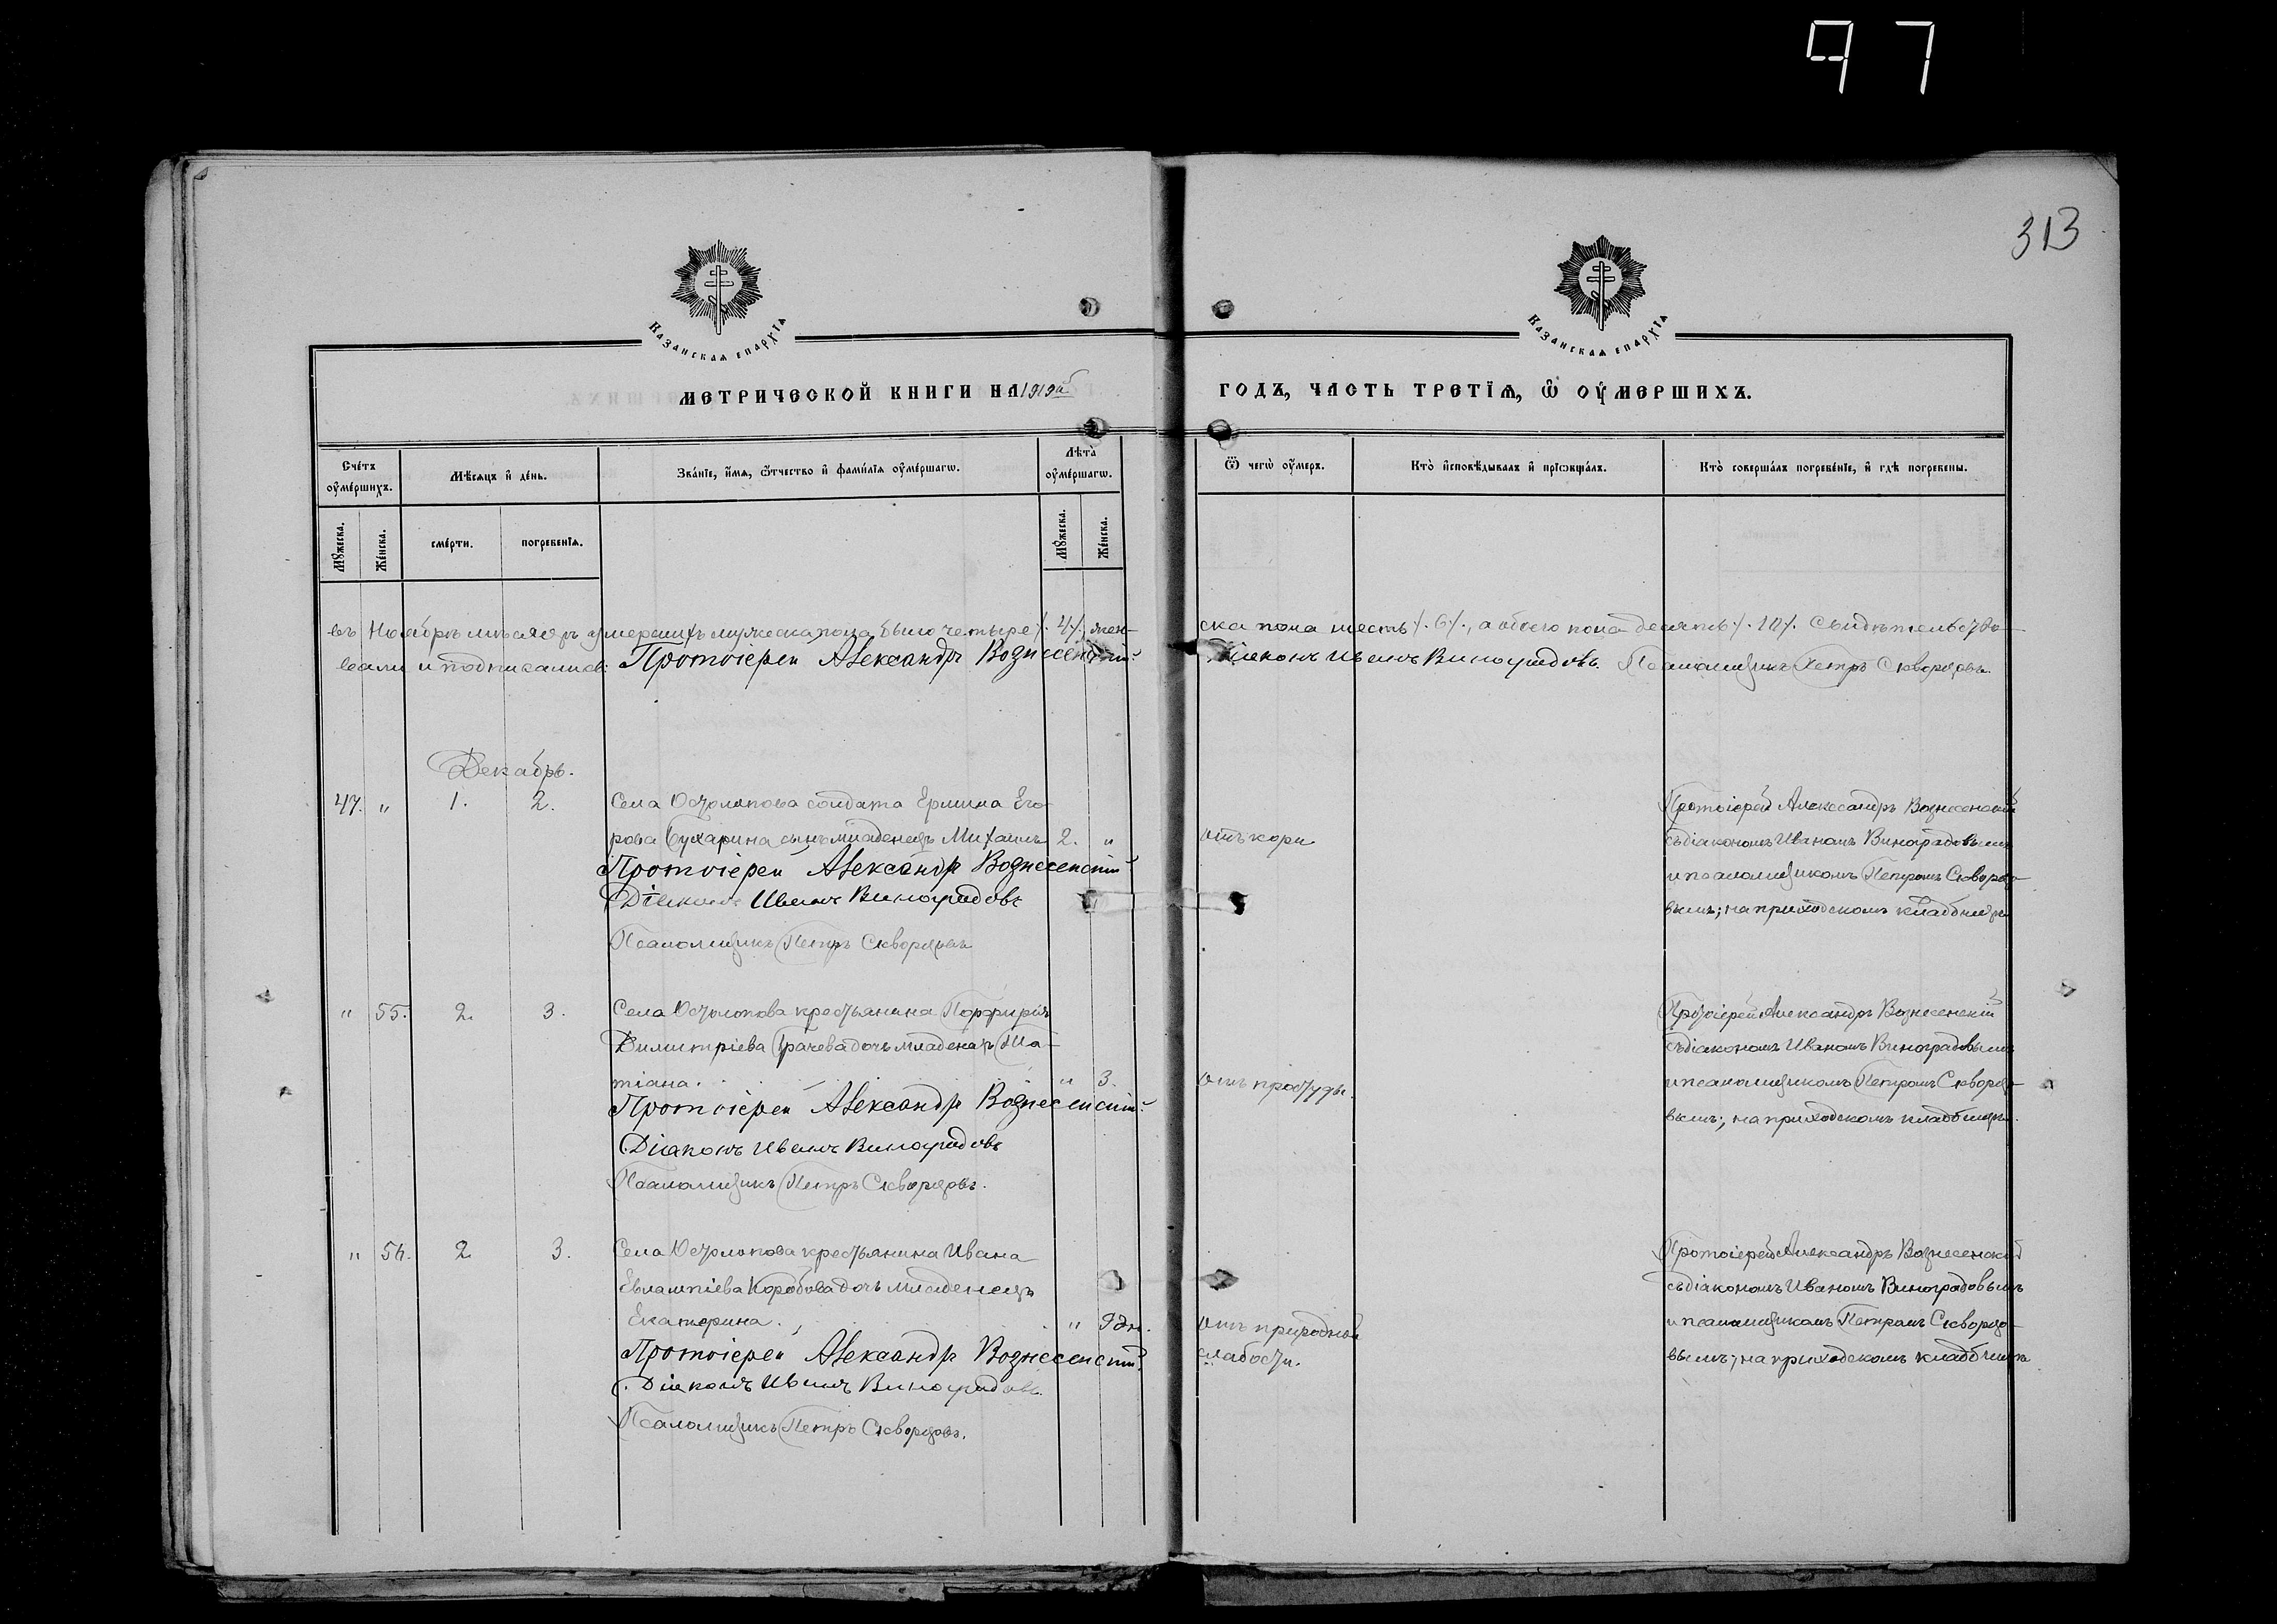 97
313
Казанская епархїѧ
Казанская епархїѧ
МЕТРИЧЕСКОЙ КНИГИ НА 1919й
ГОДЪ, ЧАСТЬ ТРЕТЇЯ, Ѿ ОУМЕРШИХЪ.
Счетъ оумершихъ.
Мѣсяцъ и день.
Званїе, имя, ѡтчество и фамилїя оумершагѡ.
Лѣта оумершагѡ.
Ѿ чегѡ оумеръ.
Кто исповѣдывалъ и прїѡбщалъ.
Кто совершалъ погребенїе, и гдѣ погребены.
Мꙋжеска.
Женска.
смерти.
погребенїя.
Мꙋжеска.
Женска.
въ Ноябрѣ мѣсяцѣ умершихъ мужеска пола было четыре /. 4 /., жен-
ска пола шесть /. 6 /., а обоего пола десять /. 10 /. Свидѣтельство-
вали и подписались: Протоіерей Александръ Вознесенскій.
Діаконъ Иванъ Виноградовъ. Псаломщикъ Петръ Скворцовъ.
Декабрь.
47. " 1. 2. Села Остолопова солдата Ермила Его-
рова Сухарина сынъ младенецъ Михаилъ 2. " отъ кори
Протоіерей Александръ Вознесенскій
Діаконъ Иванъ Виноградовъ
Псаломщикъ Петръ Скворцовъ
Протоіерей Александръ Вознесенскій
съ діакономъ Иваномъ Виноградовымъ
и псаломщикомъ Петромъ Скворцо-
вымъ; на приходскомъ кладбищѣ
" 55. 2. 3. Села Остолопова крестьянина Порфирія
Димитріева Грачева дочь младенецъ Та-
тіана. " 3. отъ простуды.
Протоіерей Александръ Вознесенскій.
Діаконъ Иванъ Виноградовъ
Псаломщикъ Петръ Скворцовъ.
Протоіерей Александръ Вознесенскій
съ діакономъ Иваномъ Виноградовымъ
и псаломщикомъ Петромъ Скворцо-
вымъ; на приходскомъ кладбищѣ.
" 56. 2. 3. Села Остолопова крестьянина Ивана
Евлампіева Коробова дочь младенецъ
Екатерина. " 9 дн. отъ природной
слабости.
Протоіерей Александръ Вознесенскій.
Діаконъ Иванъ Виноградовъ.
Псаломщикъ Петръ Скворцовъ.
Протоіерей Александръ Вознесенскій
съ діакономъ Иваномъ Виноградовымъ
и псаломщикомъ Петромъ Скворцо-
вымъ; на приходскомъ кладбищѣ